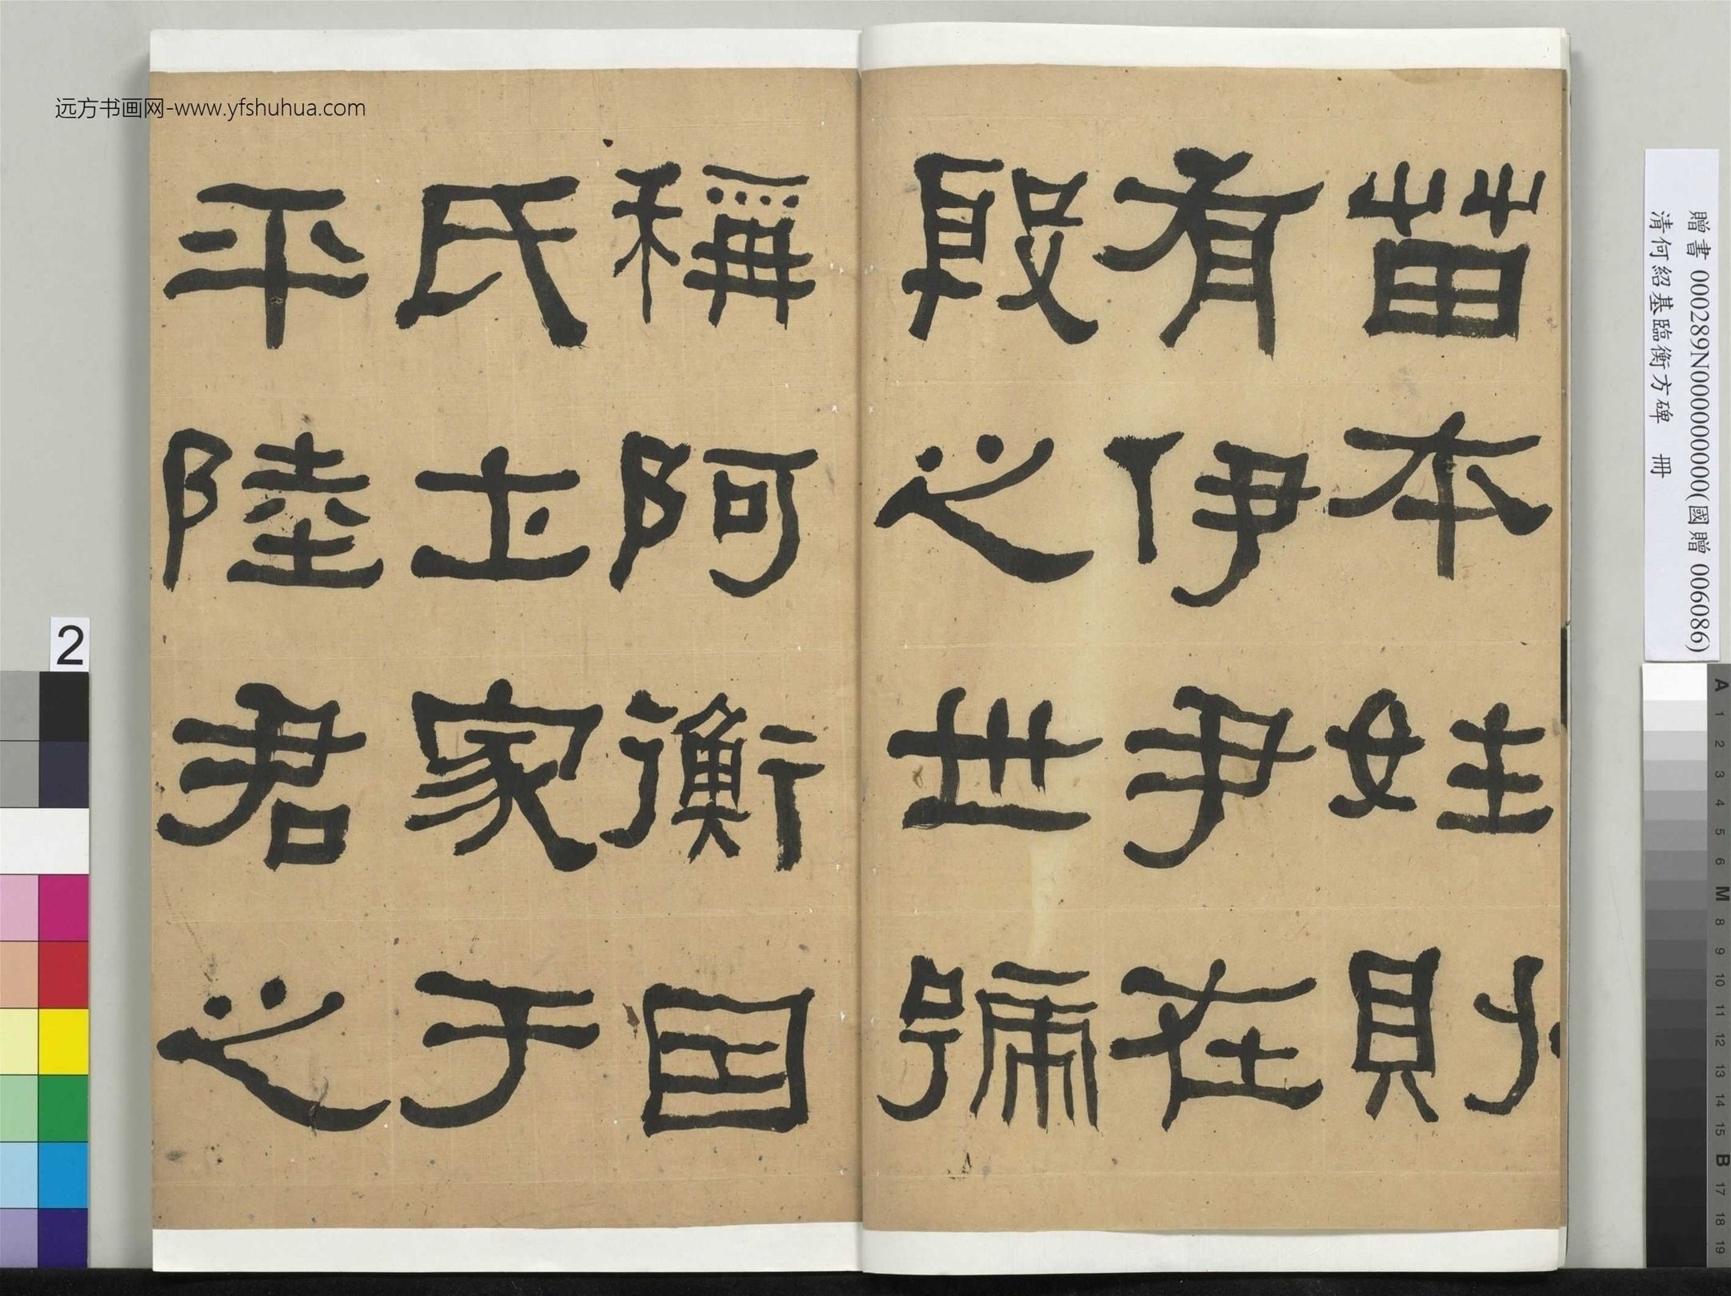 远方书画网-www.yfshuhua.com
贈書 000289N000000000(國贈 006086)
清何紹基臨衡方碑 冊
苗本姓則
有伊尹在
殷之世號
稱阿衡因
氏圡家于
平陸君之
2
A 1 2 3 4 5 6 M 8 9 10 11 12 13 14 15 B 17 18 19